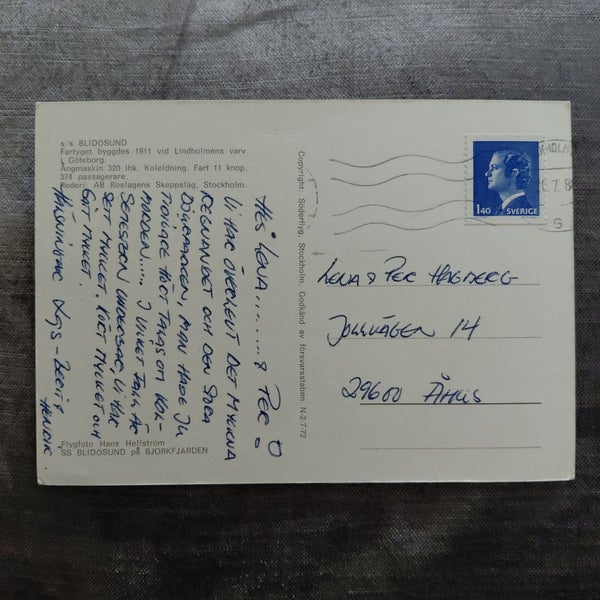 s/s BLIDÖSUND
Fartyget byggdes 1911 vid Lindholmens varv
i Göteborg.
Ångmaskin 320 ihk. Koleldning. Fart 11 knop.
374 passagerare.
Rederi: AB Roslagens Skeppslag, Stockholm.
HEJ LENA........& PER
VI HAR ÖVERLEVT DET MYCKNA
REGNANDET OCH DEN STORA
MAN HADE JU
TIDIGARE HÖRT TALAS OM
I VILKET FALL ÄR
SEMESTERN UNDERBAR, VI HAR
SETT MYCKET, KÖRT MYCKET OCH
ÄTIT MYCKET.
HÄLSNINGAR
HENRIK.
Flygfoto Hans Hellström
SS BLIDÖSUND på BJÖRKFJÄRDEN
Copyright: Söderflyg, Stockholm. Godkänd av försvarsstaben N-2-7-72
1.40 SVERIGE
LENA & PER HAGBERG
14
29600 ÅHUS